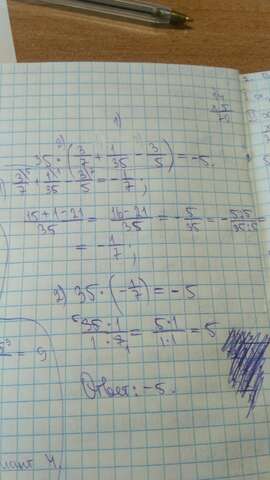 1)
35 · (3/7 + 1/35 − 3/5) = −5.
1) 3/7 + 1/35 − 3/5 = −1/7;
15+1−21/35 = 16−21/35 = −5/35 = −5:5/35:5
= −1/7;
2) 35 · (−1/7) = −5
35·1/1·7 = 5·1/1·1 = 5
Ответ: −5.
= 9
иант 4.